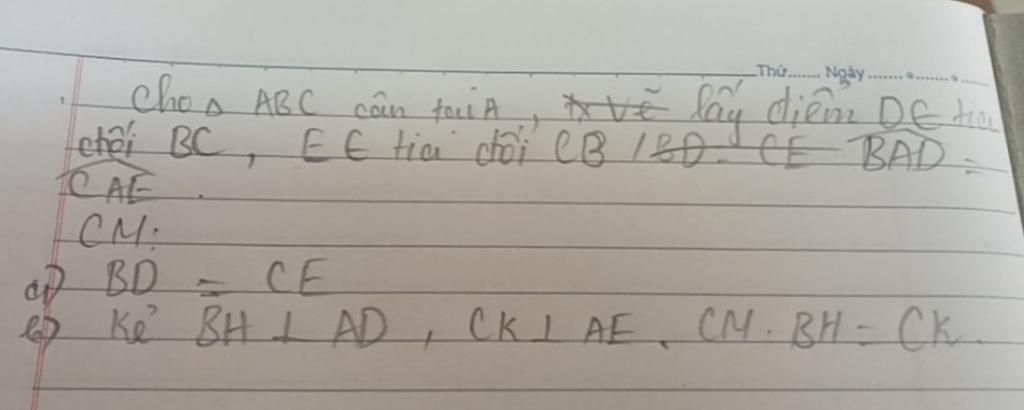 Thứ....... Ngày.................
Cho Δ ABC cân tại A, lấy điểm D ∈ tia
đối BC, E ∈ tia đối CB / BAD =
CAE.
CM:
a) BD = CE
b) Kẻ BH ⊥ AD, CK ⊥ AE. CM. BH = CK.